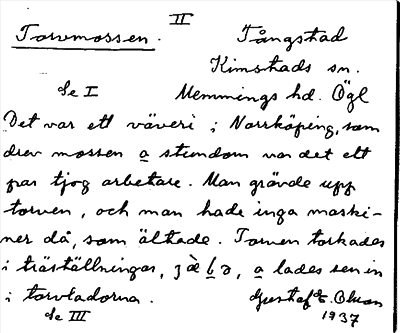 II
Torvmossen.
Tångstad
Kimstads sn.
Se I
Memmings hd. Ögl
Det var ett väveri i Norrköping, som
drev mossen a stundom var det ett
par tjog arbetare. Man grävde upp
torven, och man hade inga maski-
ner då, som ältade. Torven torkades
i träställningar, a lades sen in
i torvladorna.
Gustaf E. Olson
Se III
1937